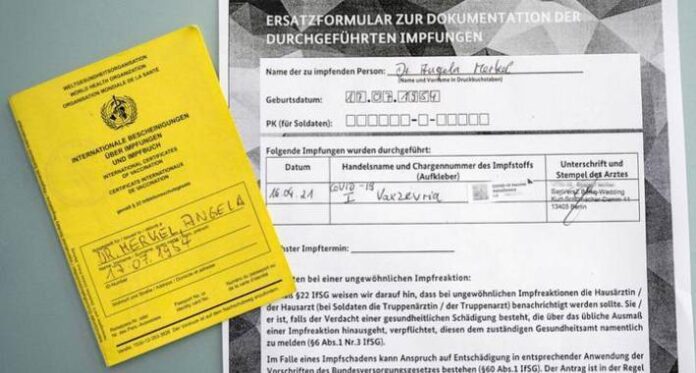 WELTGESUNDHEITSORGANISATION
WORLD HEALTH ORGANIZATION
ORGANISATION MONDIALE DE LA SANTÉ
INTERNATIONALE BESCHEINIGUNGEN
ÜBER IMPFUNGEN
UND IMPFBUCH
INTERNATIONAL CERTIFICATES
OF VACCINATION
CERTIFICATS INTERNATIONAUX
DE VACCINATION
DR. MERKEL, ANGELA
17.07.1954
ERSATZFORMULAR ZUR DOKUMENTATION DER
DURCHGEFÜHRTEN IMPFUNGEN
Name der zu impfenden Person: Dr. Angela Merkel
(Name und Vorname in Druckbuchstaben)
Geburtsdatum: 17.07.1954
PK (für Soldaten):
Folgende Impfungen wurden durchgeführt:
Datum Handelsname und Chargennummer des Impfstoffs (Aufkleber) Unterschrift und Stempel des Arztes
16.04.21 COVID-19
I Vaxzevria
13405 Berlin
hster Impftermin:
ten bei einer ungewöhnlichen Impfreaktion:
ß §22 IfSG weisen wir darauf hin, dass bei ungewöhnlichen Impfreaktionen die Hausärztin /
der Hausarzt (bei Soldaten die Truppenärztin / der Truppenarzt) benachrichtigt werden sollte. Sie /
er ist, falls der Verdacht einer gesundheitlichen Schädigung besteht, die über das übliche Ausmaß
einer Impfreaktion hinausgeht, verpflichtet, diesen dem zuständigen Gesundheitsamt namentlich
zu melden (§6 Abs.1 Nr.3 IfSG).
Im Falle eines Impfschadens kann Anspruch auf Entschädigung in entsprechender Anwendung der
Vorschriften des Bundesversorgungsgesetzes bestehen (§60 Abs.1 IfSG). Der Antrag ist in der Regel